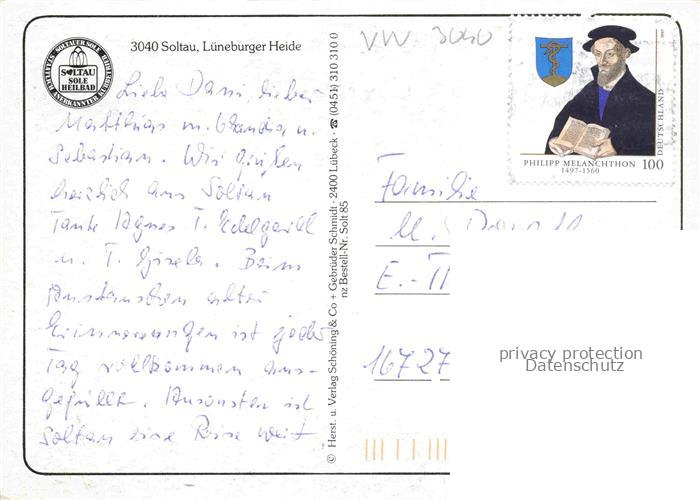 3040 Soltau, Lüneburger Heide
SOLTAU
SOLE
HEILBAD
Liebe Dani, lieber
Matthias m. u.
Sebastian. Wir grüßen
herzlich aus Soltau
Tante Agnes T. Edelgard
u. T. Gisela. Beim
Austauschen alter
Erinnerungen ist jeder
Tag vollkommen aus-
gefüllt. Ansonsten ist
Soltau eine Reise wert.
© Herst. u. Verlag Schöning & Co + Gebrüder Schmidt · 2400 Lübeck · ☎ (0451) 310 310 0
nz Bestell-Nr. Solt 85
VW 3040
DEUTSCHLAND
PHILIPP MELANCHTHON 100
1497-1560
Familie
M.
E.-
16727
privacy protection
Datenschutz